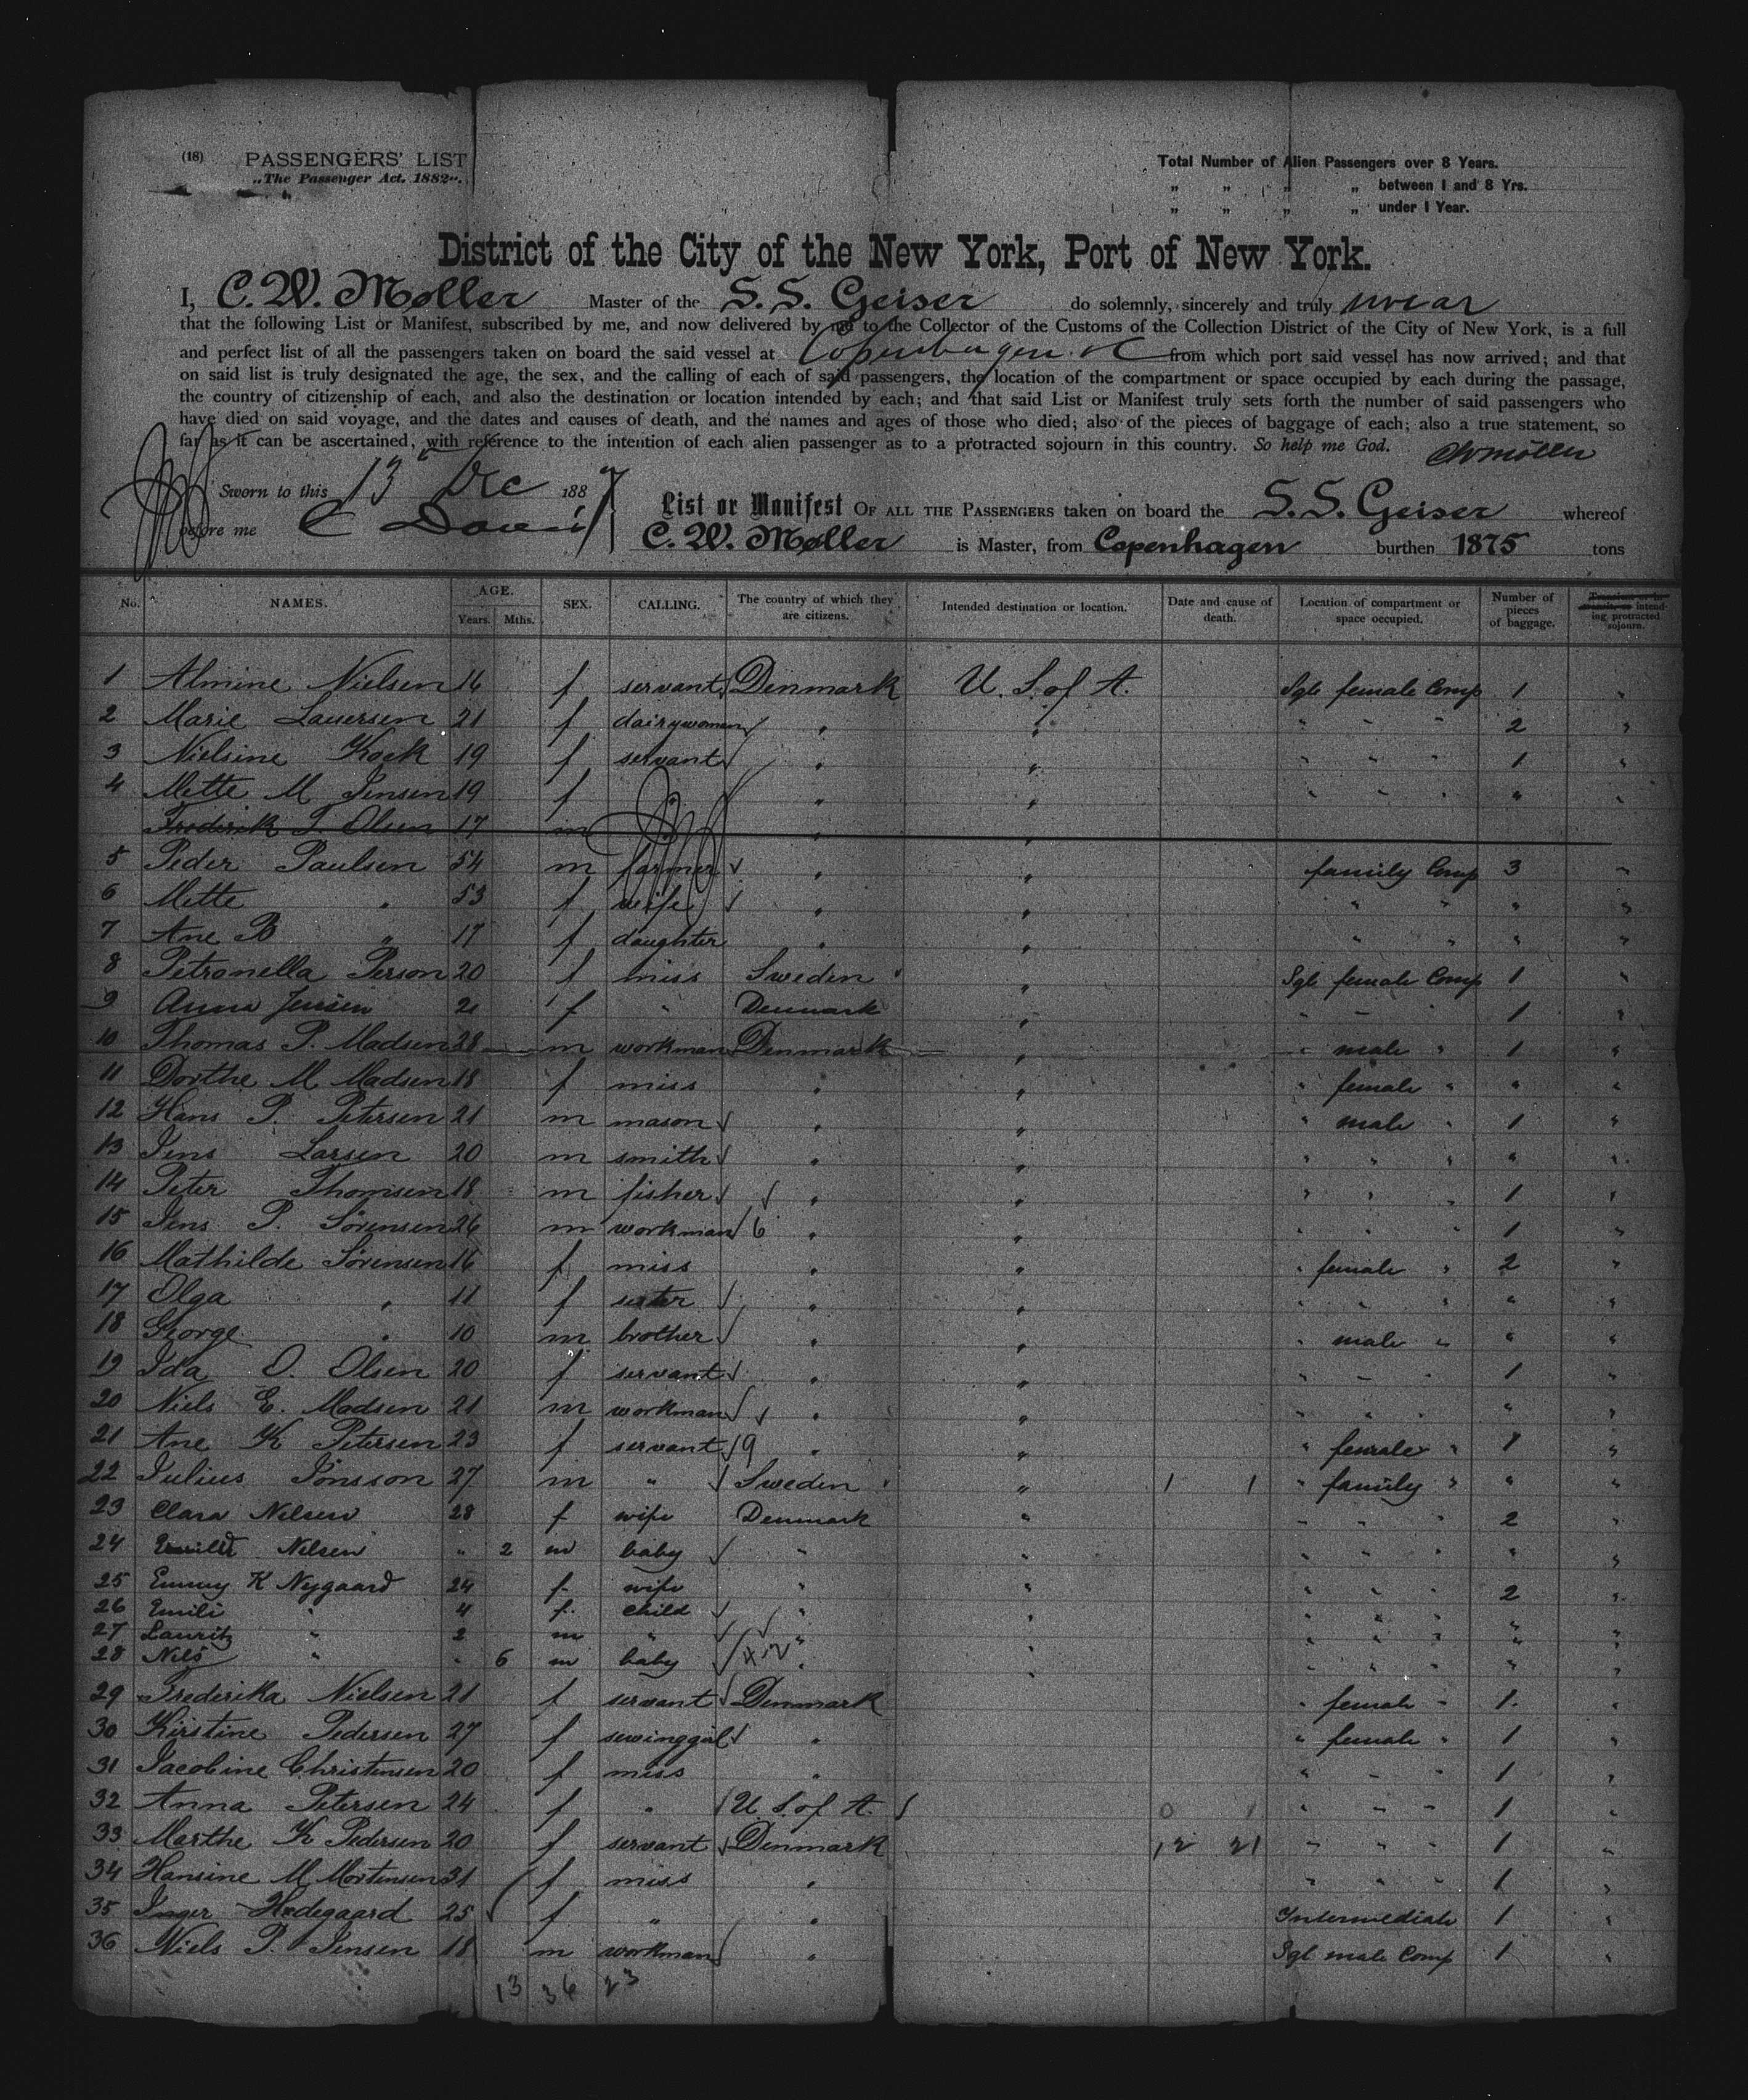 (18) PASSENGERS' LIST
„The Passenger Act. 1882".
Total Number of Alien Passengers over 8 Years.
„ „ „ „ between 1 and 8 Yrs.
„ „ „ „ under 1 Year.
District of the City of the New York, Port of New York.
I, C. W. Møller Master of the S. S. Geiser do solemnly, sincerely and truly swear
that the following List or Manifest, subscribed by me, and now delivered by me to the Collector of the Customs of the Collection District of the City of New York, is a full
and perfect list of all the passengers taken on board the said vessel at Copenhagen from which port said vessel has now arrived; and that
on said list is truly designated the age, the sex, and the calling of each of said passengers, the location of the compartment or space occupied by each during the passage,
the country of citizenship of each, and also the destination or location intended by each; and that said List or Manifest truly sets forth the number of said passengers who
have died on said voyage, and the dates and causes of death, and the names and ages of those who died; also of the pieces of baggage of each; also a true statement, so
far as it can be ascertained, with reference to the intention of each alien passenger as to a protracted sojourn in this country. So help me God. CWMöller
Sworn to this 13 Dec 1887
before me C
List or Manifest OF ALL THE PASSENGERS taken on board the S. S. Geiser whereof
C. W. Møller is Master, from Copenhagen burthen 1875 tons
No. NAMES. AGE. Years. Mths. SEX. CALLING. The country of which they are citizens. Intended destination or location. Date and cause of death. Location of compartment or space occupied. Number of pieces of baggage. Transient or in transit, or intending protracted sojourn.
1 Almine Nielsen 16 f servant Denmark U. S. of A. Sgle female Comp 1 "
2 Marie Lauersen 21 f dairywoman " " " " " 2 "
3 Nielsine Kock 19 f servant " " " " " 1 "
4 Mette M Jensen 19 f " " " " " " " "
Frederik P. Olsen 17 m " "
5 Peder Paulsen 54 m farmer " " family Comp 3 "
6 Mette " 53 f wife " " " " " "
7 Ane B " 17 f daughter " " " " " "
8 Petronella Person 20 f miss Sweden " Sgle female Comp 1 "
9 Anna Jensen 21 f " Denmark " " " " 1 "
10 Thomas P. Madsen 28 m workman Denmark " " male " 1 "
11 Dorthe M Madsen 18 f miss " " " female " " "
12 Hans P. Petersen 21 m mason " " " male " 1 "
13 Jens Larsen 20 m smith " " " " " " "
14 Peter Thomsen 18 m fisher " " " " " 1 "
15 Jens P. Sörensen 26 m workman 6 " " " " " 1 "
16 Mathilde Sörensen 16 f miss " " " female " 2 "
17 Olga " 11 f sister " " " " " " "
18 George " 10 m brother " " " male " " "
19 Ida O. Olsen 20 f servant " " " " " 1 "
20 Niels E. Madsen 21 m workman " " " " " " "
21 Ane K Petersen 23 f servant 9 " " " female " 1 "
22 Julius Jönsson 27 m " Sweden " 1 1 " family " " "
23 Clara Nelsen 28 f wife Denmark " " " " 2 "
24 Nelsen " 2 m baby " " " " " " "
25 Emmy K Nygaard 24 f wife " " " " " 2 "
26 Emili " 4 f child " " " " " " "
27 Lauritz " 2 m " " " " " " "
28 Nils " " 6 m baby " " " " " " "
29 Frederika Nielsen 21 f servant Denmark " female " 1 "
30 Kirstine Pedersen 27 f sewinggirl " " female " 1 "
31 Jacobine Christensen 20 f miss " " " " 1 "
32 Anna Petersen 24 f " U. S. of A. 0 1 " " " 1 "
33 Marthe K Pedersen 20 f servant Denmark 12 21 " " " 1 "
34 Hansine M Mortensen 31 f miss " " " " 1 "
35 Inger Hedegaard 25 f " " Intermediate 1 "
36 Niels P. Jensen 18 m workman " Sgl male Comp 1 "
13 36 23